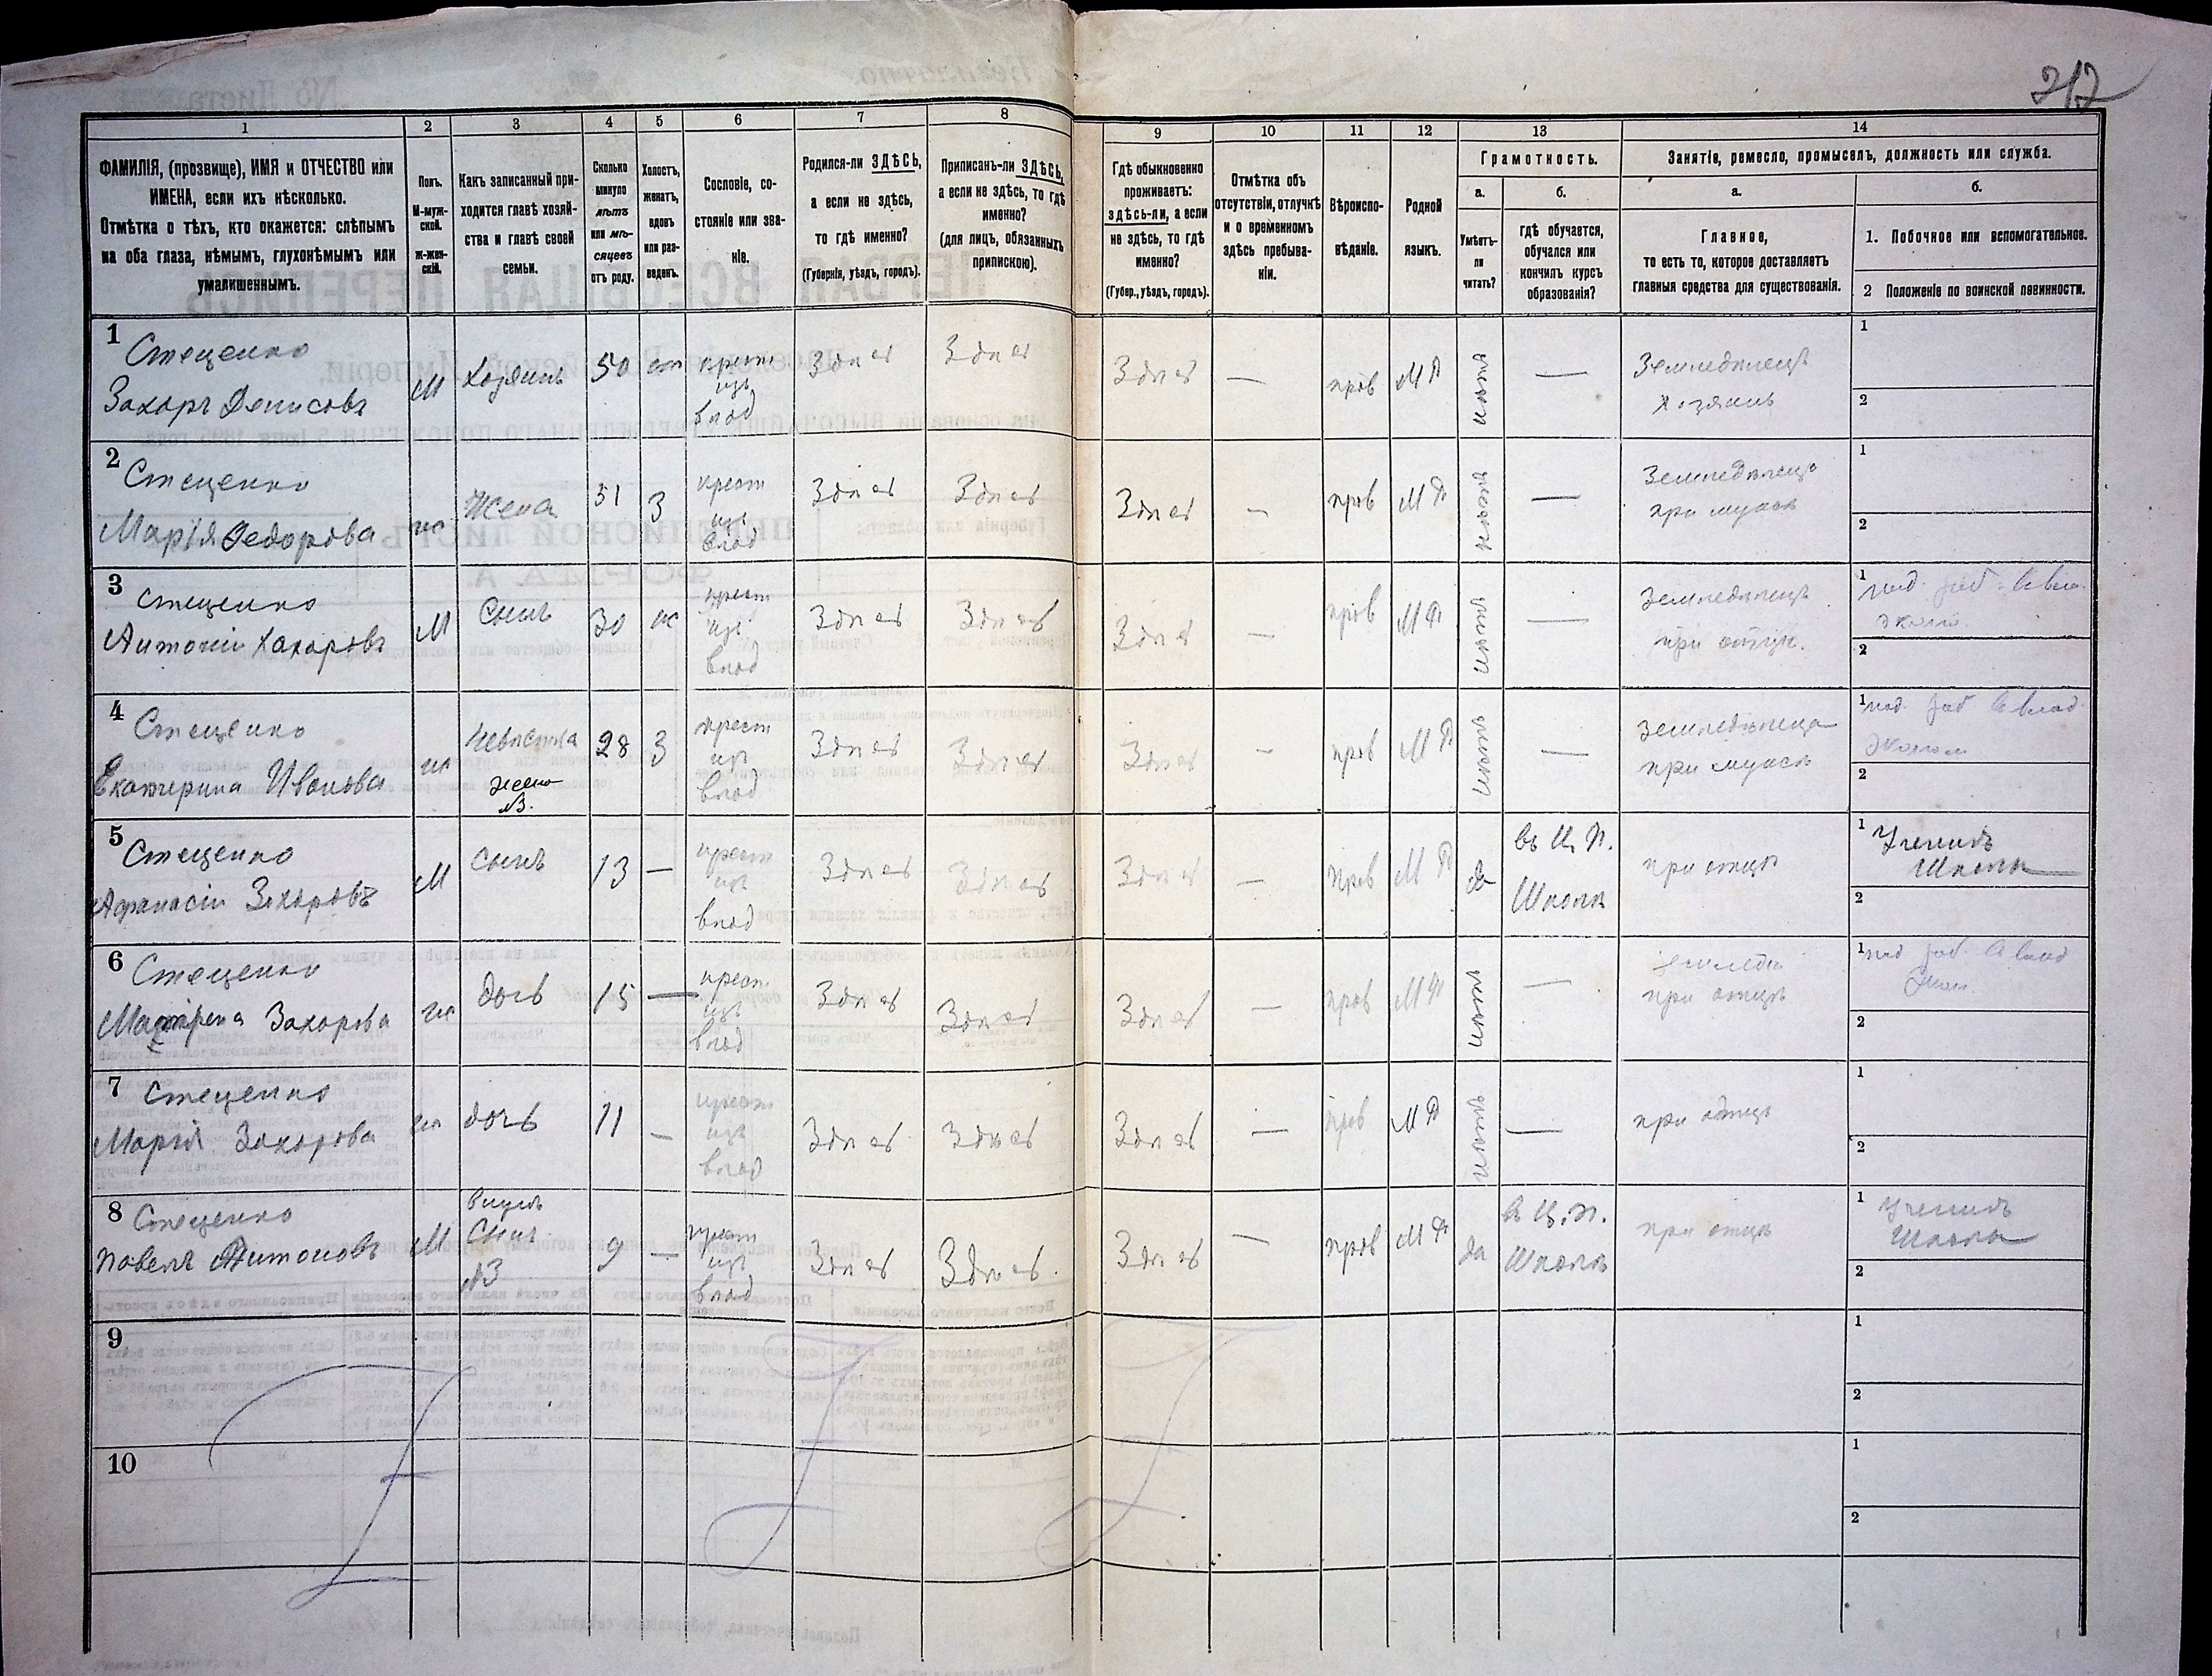 212
1
2
3
4
5
6
7
8
9
10
11
12
13
14
ФАМИЛІЯ, (прозвище), ИМЯ и ОТЧЕСТВО или
ИМЕНА, если ихъ нѣсколько.
Отмѣтка о тѣхъ, кто окажется: слѣпымъ
на оба глаза, нѣмымъ, глухонѣмымъ или
умалишеннымъ.
Полъ.
М-муж-
ской.
Ж-жен-
скій.
Какъ записанный при-
ходится главѣ хозяй-
ства и главѣ своей
семьи.
Сколько
минуло
лѣтъ
или мѣ-
сяцевъ
отъ роду.
Холостъ,
женатъ,
вдовъ
или раз-
веденъ.
Сословіе, со-
стояніе или зва-
ніе.
Родился-ли ЗДѢСЬ,
а если не здѣсь,
то гдѣ именно?
(Губернія, уѣздъ, городъ).
Приписанъ-ли ЗДѢСЬ,
а если не здѣсь, то гдѣ
именно?
(для лицъ, обязанныхъ
припискою).
Гдѣ обыкновенно
проживаетъ:
здѣсь-ли, а если
не здѣсь, то гдѣ
именно?
(Губер., уѣздъ, городъ).
Отмѣтка объ
отсутствіи, отлучкѣ
и о временномъ
здѣсь пребыва-
ніи.
Вѣроиспо-
вѣданіе.
Родной
языкъ.
Грамотность.
а.
Умѣетъ-
ли
читать?
б.
гдѣ обучается,
обучался или
кончилъ курсъ
образованія?
Занятіе, ремесло, промыселъ, должность или служба.
а.
Главное,
то есть то, которое доставляетъ
главныя средства для существованія.
б.
1. Побочное или вспомогательное.
2 Положеніе по воинской повинности.
1
Стеценко
Захаръ Денисовъ
М
Хозяинъ
50
крест
изъ
влад
Здѣсь
Здѣсь
Здѣсь
—
прав
МР
нѣтъ
—
Земледѣлецъ
хозяинъ
1
2
2
Стеценко
Марія Федорова
ж
Жена
51
З
крест
изъ
влад
Здѣсь
Здѣсь
Здѣсь
—
прав
МР
нѣтъ
—
Земледѣлецъ
при мужѣ
1
2
3
Стеценко
Антоній Захаровъ
М
Сынъ
30
ж
крест
изъ
влад
Здѣсь
Здѣсь
Здѣсь
—
прав
МР
нѣтъ
—
Земледѣлецъ
при отцѣ
1 под. раб. в вла.
эконо.
2
4
Стеценко
Екатерина Иванова
ж
Невѣстка
жена
№3.
28
З
крест
изъ
влад
Здѣсь
Здѣсь
Здѣсь
—
прав
МР
нѣтъ
—
Земледѣлеца
при мужѣ
1 под. раб в влад.
эконом
2
5
Стеценко
Афанасій Захаровъ
М
сынъ
13
—
крест
изъ
влад
Здѣсь
Здѣсь
Здѣсь
—
прав
МР
да
въ Ц. П.
Школѣ
при отцѣ
1 Ученикъ
Школы
2
6
Стеценко
Матрена Захарова
ж
дочь
15
—
крест.
изъ
влад
Здѣсь
Здѣсь
Здѣсь
—
прав
МР
нѣтъ
—
при отцѣ
1 под раб. в влад
эко.
2
7
Стеценко
Марія Захарова
ж
дочь
11
—
крест
изъ
влад
Здѣсь
Здѣсь
Здѣсь
—
прав
МР
нѣтъ
—
при отцѣ
1
2
8
Стеценко
Павелъ Антоновъ
М
Внукъ
Сынъ
№3
9
—
крест
изъ
влад
Здѣсь
Здѣсь.
Здѣсь
—
прав
МР
да
въ Ц. П.
Школѣ
при отцѣ
1 Ученикъ
Школы
2
9
1
2
10
1
2